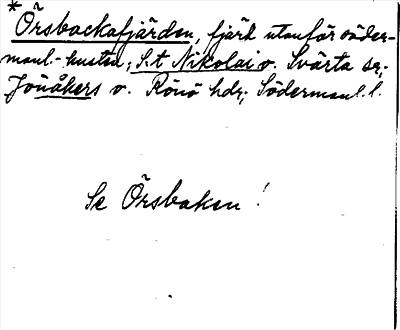 * Örsbackafjärden, fjärd utanför söder-
manl.-kusten; S:t Nikolai o. Svärta sr;
Jönåkers o. Rönö hdr; Södermanl. l.
Se Örsbaken!